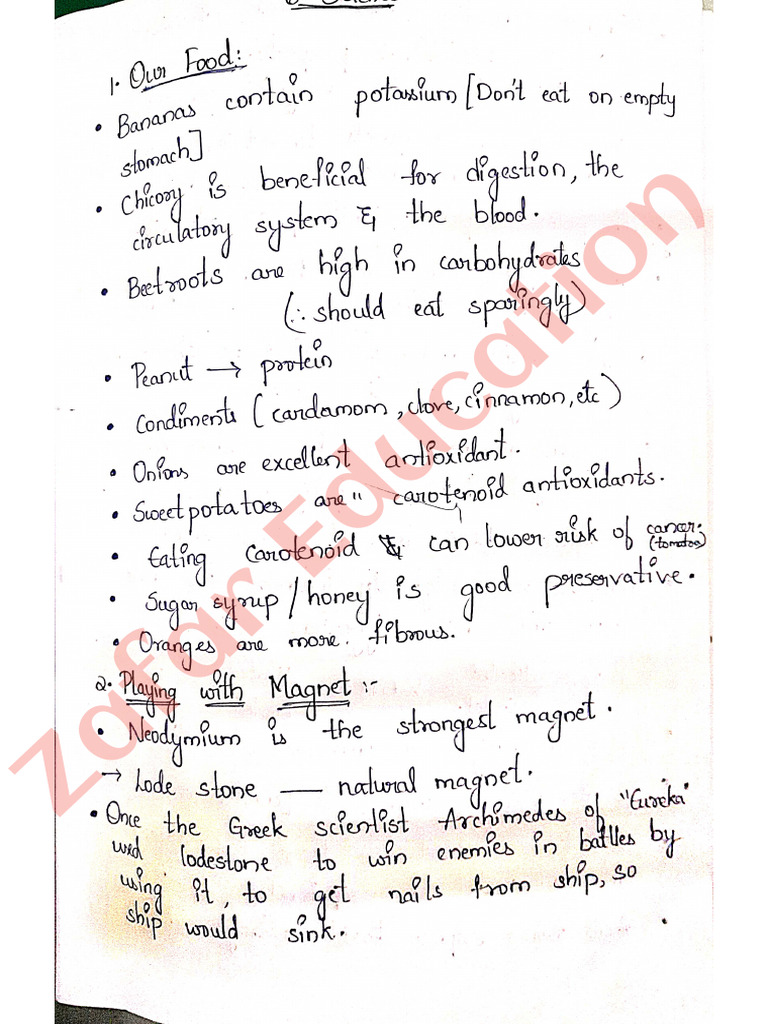 1. Our Food:
• Bananas contain potassium [Don't eat on empty
stomach]
• Chicory is beneficial for digestion, the
circulatory system & the blood.
• Beetroots are high in carbohydrates
(∴ should eat sparingly)
• Peanut → protein
• Condiments (cardamom, clove, cinnamon, etc)
• Onions are excellent antioxidant.
• Sweet potatoes are " carotenoid antioxidants.
• Eating carotenoid & can lower risk of cancer.
(tomatoes)
• Sugar syrup / honey is good preservative.
• Oranges are more fibrous.
2. Playing with Magnet :-
• Neodymium is the strongest magnet.
→ Lode stone — natural magnet.
• Once the Greek scientist Archimedes of "Eureka"
used lodestone to win enemies in battles by
using it, to get nails from ship, so
ship would sink.
Zafar Education